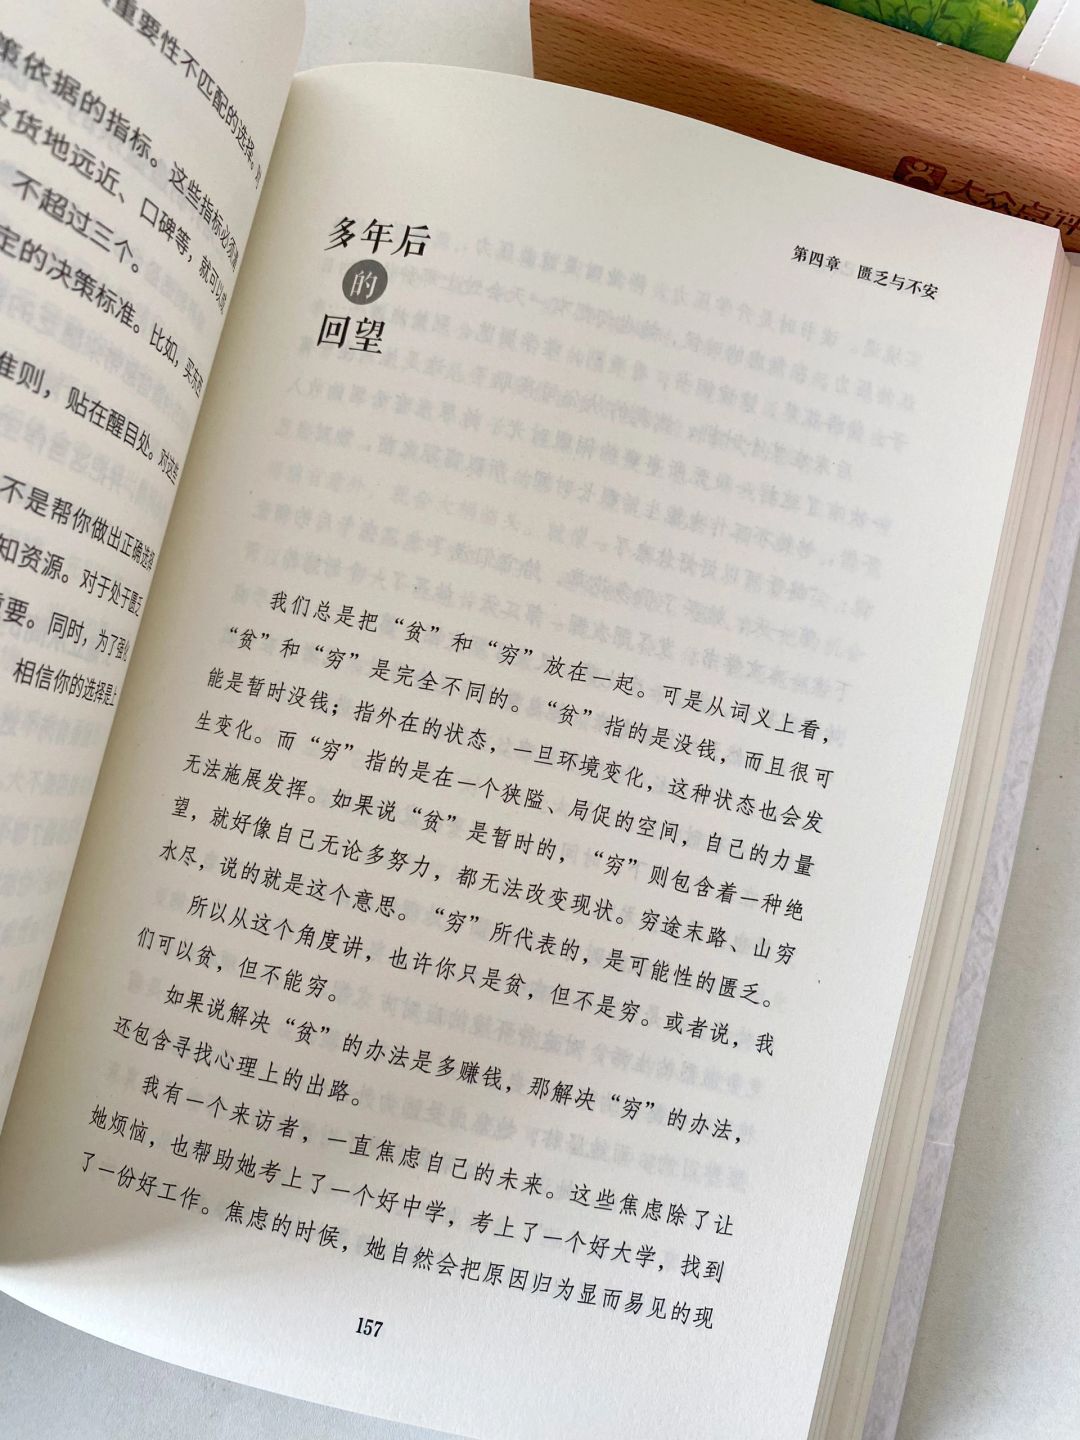 重要性不匹配的选择。对
策依据的指标。这些指标必须满
发货地远近、口碑等，就可以成
不超过三个。
定的决策标准。比如，买东西
准则，贴在醒目处。对这些
不是帮你做出正确选择
知资源。对于处于匮乏
重要。同时，为了强化
相信你的选择是上
大众点评
第四章 匮乏与不安
多年后
的
回望
我们总是把“贫”和“穷”放在一起。可是从词义上看，
“贫”和“穷”是完全不同的。“贫”指的是没钱，而且很可
能是暂时没钱；指外在的状态，一旦环境变化，这种状态也会发
生变化。而“穷”指的是在一个狭隘、局促的空间，自己的力量
无法施展发挥。如果说“贫”是暂时的，“穷”则包含着一种绝
望，就好像自己无论多努力，都无法改变现状。穷途末路、山穷
水尽，说的就是这个意思。“穷”所代表的，是可能性的匮乏。
所以从这个角度讲，也许你只是贫，但不是穷。或者说，我
们可以贫，但不能穷。
如果说解决“贫”的办法是多赚钱，那解决“穷”的办法，
还包含寻找心理上的出路。
我有一个来访者，一直焦虑自己的未来。这些焦虑除了让
她烦恼，也帮助她考上了一个好中学，考上了一个好大学，找到
了一份好工作。焦虑的时候，她自然会把原因归为显而易见的现
157